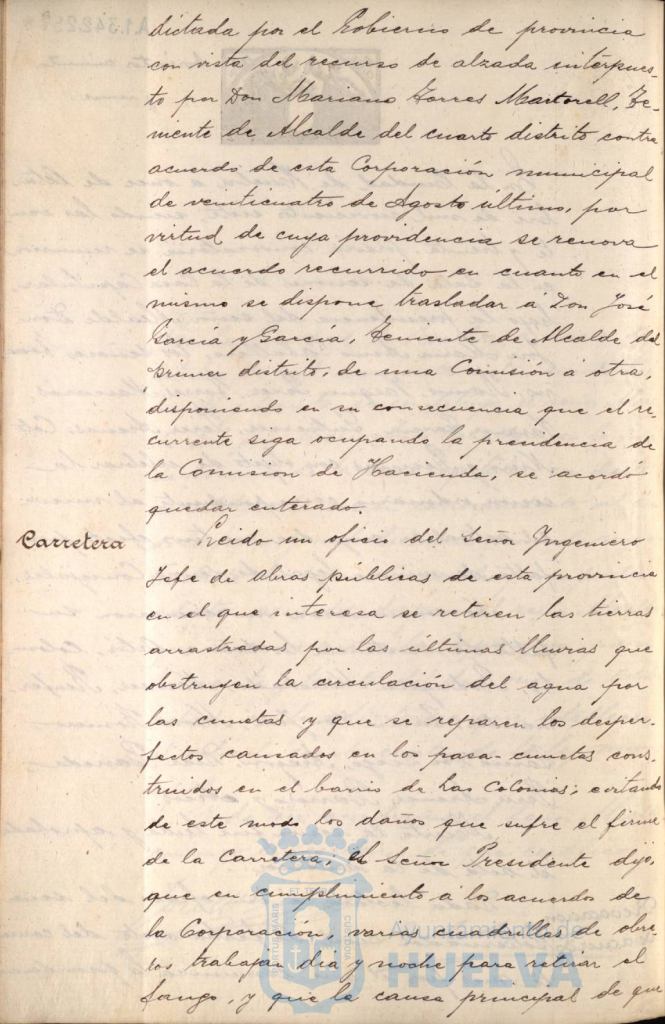 dictada por el Gobierno de provincia
con vista del recurso de alzada interpues-
to por Don Mariano Torres Martorell, Te-
niente de Alcalde del cuarto distrito contra
acuerdo de esta Corporación municipal
de veinticuatro de Agosto último, por
virtud de cuya providencia se renova
el acuerdo recurrido en cuanto en el
mismo se dispone trasladar a Don José
García y García, Teniente de Alcalde del
primer distrito, de una Comisión á otra,
disponiendo en su consecuencia que el re-
currente siga ocupando la presidencia de
la Comision de Hacienda, se acordó
quedar enterado.
Carretera
Leido un oficio del Señor Ingeniero
Jefe de Obras públicas de esta provincia
en el que interesa se retiren las tierras
arrastradas por las últimas lluvias que
obstruyen la circulación del agua por
las cunetas y que se reparen los desper-
fectos causados en los pasa-cunetas cons-
truidos en el barrio de Las Colonias; evitando
de este modo los daños que sufre el firme
de la Carretera, el Señor Presidente dijo,
que en cumplimiento á los acuerdos de
la Corporación, varias cuadrillas de obre-
ros trabajan dia y noche para retirar el
fango, y que la causa principal de que
Ayuntamiento de
HUELVA